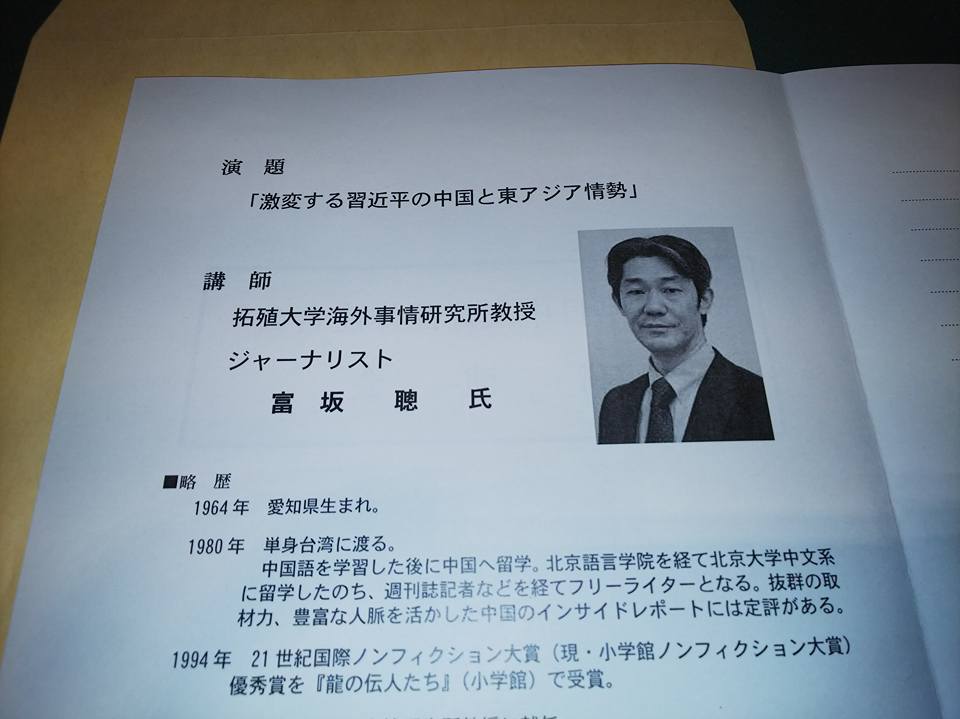 演 題
「激変する習近平の中国と東アジア情勢」
講 師
拓殖大学海外事情研究所教授
ジャーナリスト
富 坂 聰 氏
■略 歴
1964年 愛知県生まれ。
1980年 単身台湾に渡る。
中国語を学習した後に中国へ留学。北京語言学院を経て北京大学中文系
に留学したのち、週刊誌記者などを経てフリーライターとなる。抜群の取
材力、豊富な人脈を活かした中国のインサイドレポートには定評がある。
1994年 21世紀国際ノンフィクション大賞（現・小学館ノンフィクション大賞）
優秀賞を『龍の伝人たち』（小学館）で受賞。